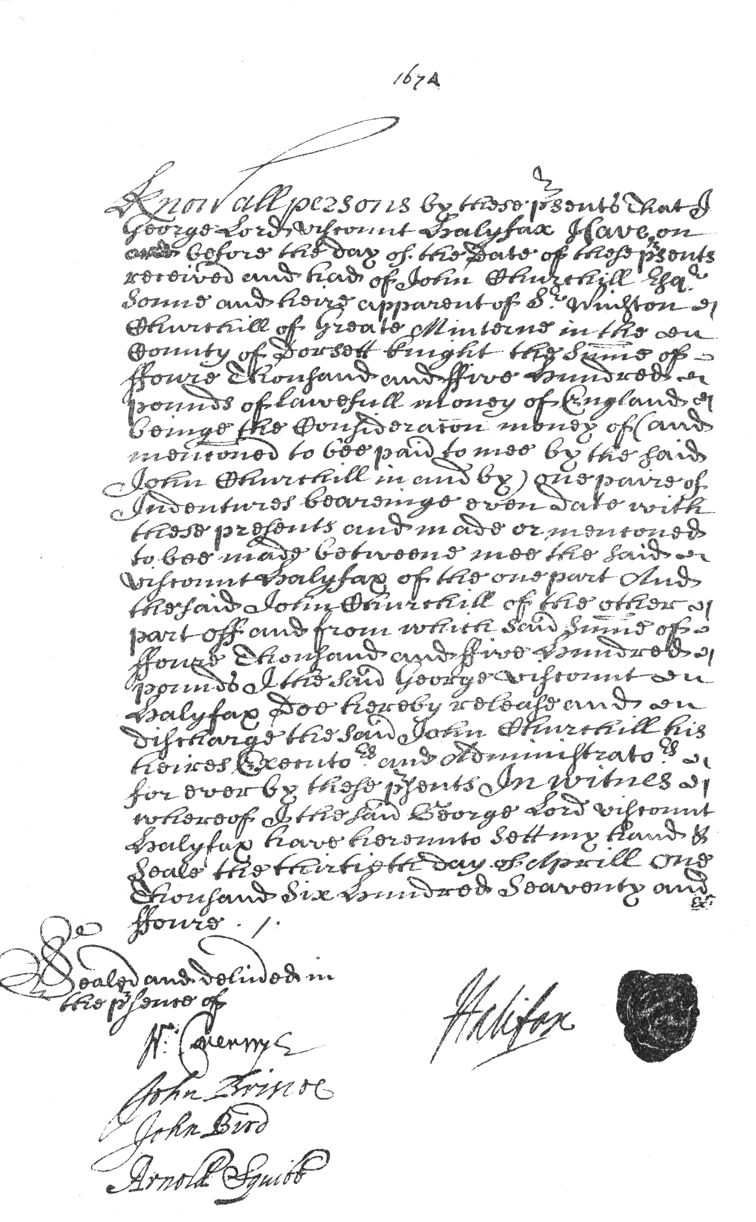 1674
Know all persons by these p̃sents That I
George Lord viscount Halyfax Have on
and before the day of the Date of these p̃sents
received and had of John Churchill Esqr
Sonne and heire apparent of Sr Winston
Churchill of Greate Minterne in the
County of Dorsett Knight the Sum̃e of
ffoure Thousand and ffive Hundred
pounds of lawefull money of England
beinge the Consideraton money of (and
mentoned to bee paid to mee by the said
John Churchill in and by) one paire of
Indentures beareinge even date with
these presents and made or mentoned
to bee made betweene mee the said
viscount Halyfax of the one part And
the said John Churchill of the other
part off and from which said Sum̃e of
ffoure Thousand and ffive Hundred
pounds I the said George viscount
Halyfax Doe hereby release and
discharge the said John Churchill his
heires Executors and Administrators
for ever by these p̃sents In witnes
whereof I the said George Lord viscount
Halyfax have hereunto sett my hand &
Seale the thirtieth day of Aprill One
Thousand Six Hundred Seaventy and
ffoure
Sealed and deliũed in
the p̃sence of
Halifax
John Brisco
John Bird
Arnold Squibb